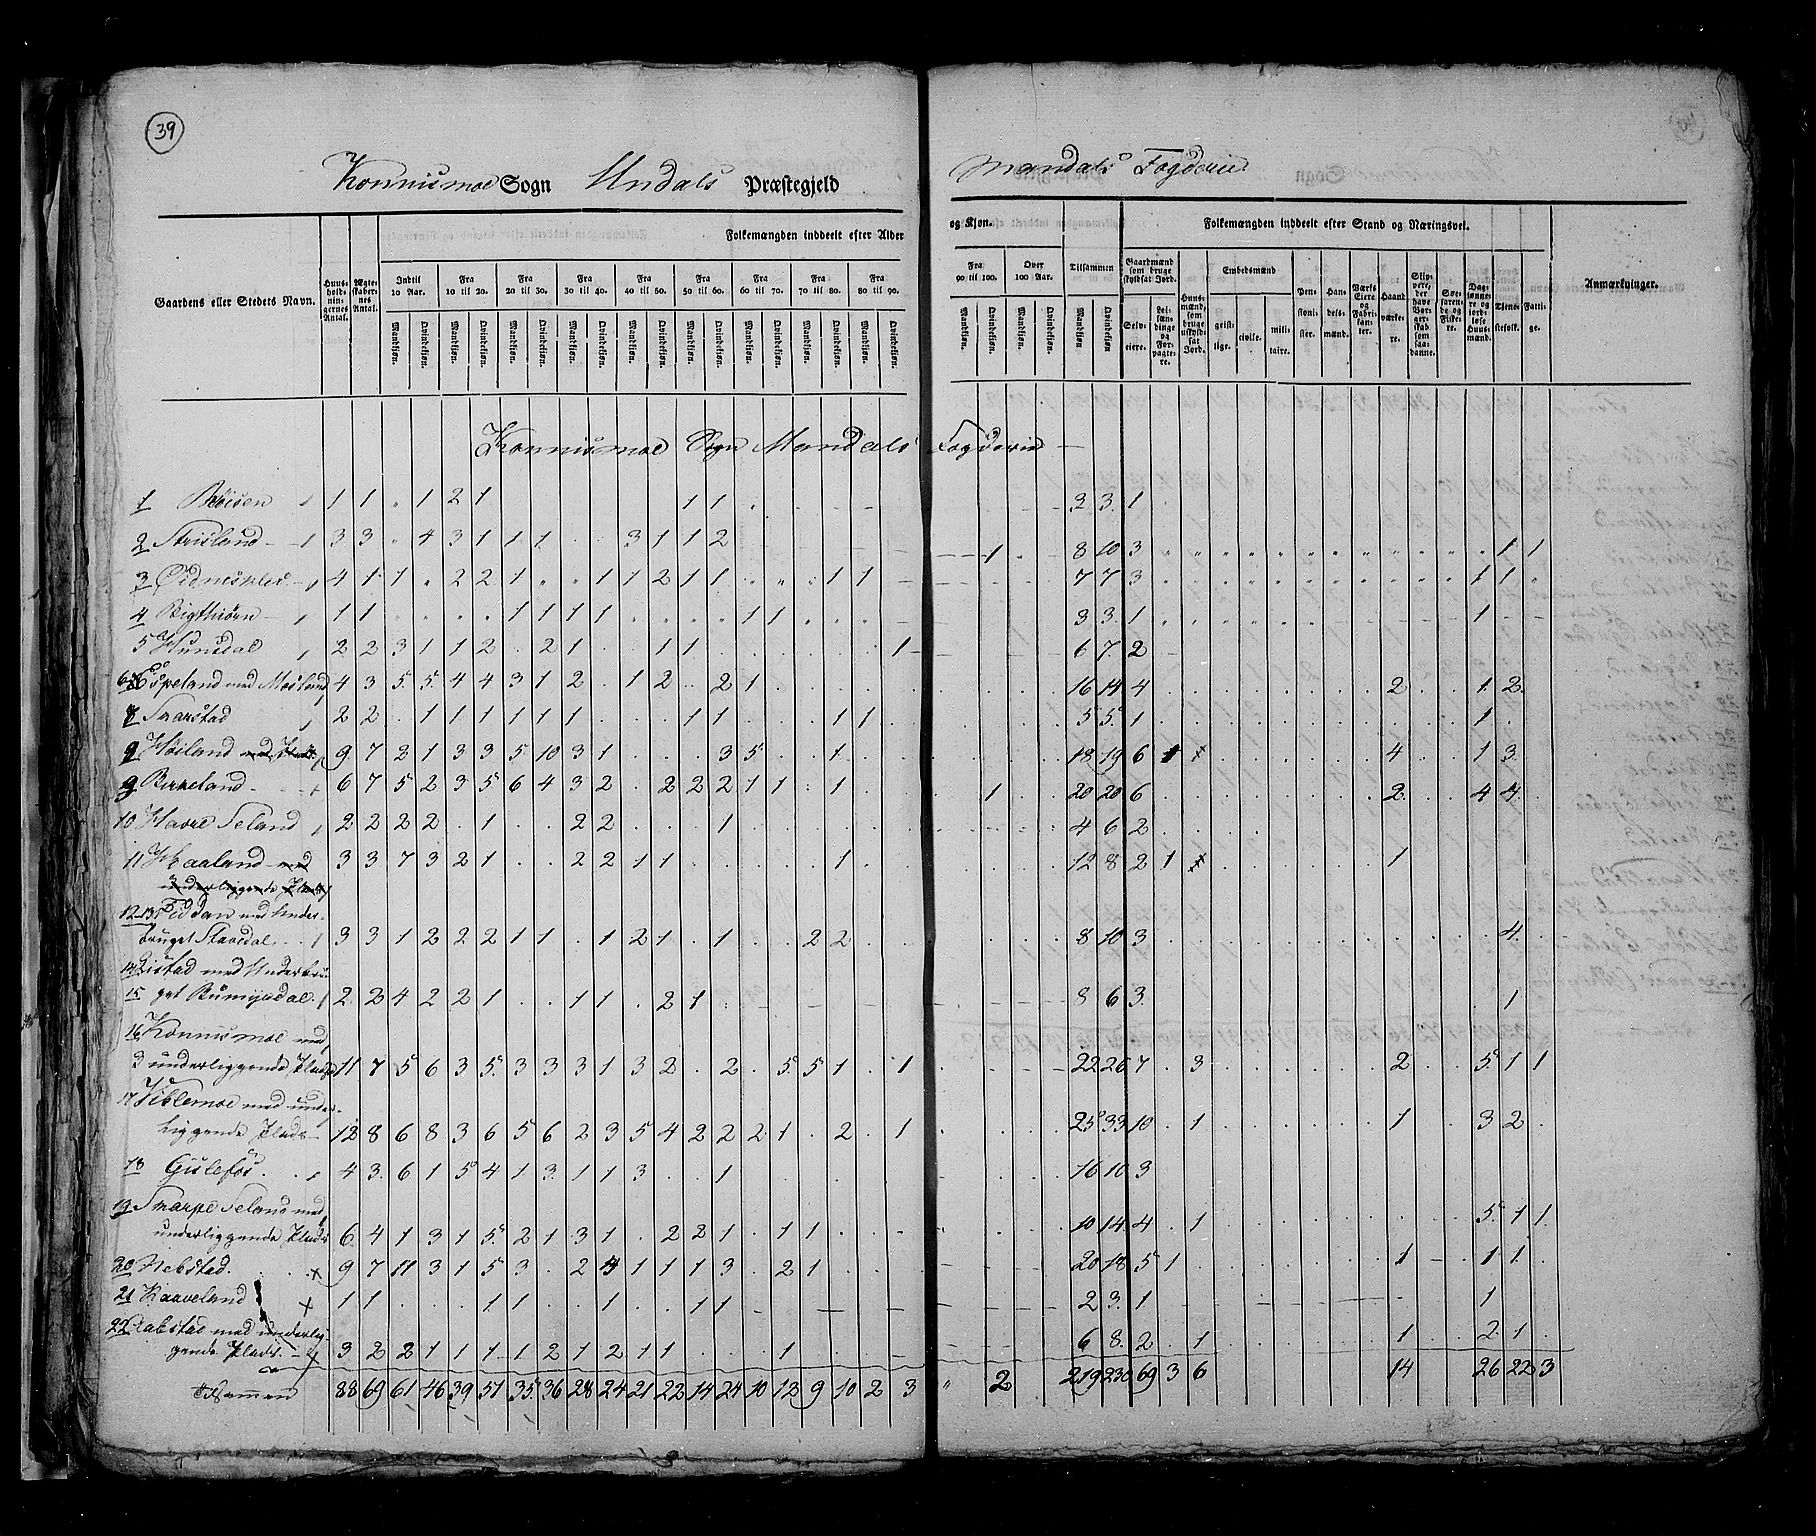 39
Konnismoe Sogn Undals Præstegjeld Mandals Fogderie
Folkemængden inddeelt efter Alder og Kjøn. Folkemængden inddeelt efter Stand og Næringsvei.
Gaardens eller Stedets Navn. Huusholdningernes Antal. Ægteskabernes Antal. Indtil 10 Aar. Fra 10 til 20. Fra 20 til 30. Fra 30 til 40. Fra 40 til 50. Fra 50 til 60. Fra 60 til 70. Fra 70 til 80. Fra 80 til 90. Fra 90 til 100. Over 100 Aar. Tilsammen Gaardmænd som bruge skyldsat Jord. Huusmænd, som bruge uskyldsat Jord. Embedsmænd Pensionister. Handelsmænd. Værks Eiere og Fabrikanter. Haandværkere. Skippere, der have Borgerskab som saadanne. Søefarende og Fiskere. Daglønnere og jordløse Huusmænd. Tjenestefolk. Fattige. Anmærkninger.
Mandkiøn. Qvindekiøn. Mandkiøn. Qvindekiøn. Mandkiøn. Qvindekiøn. Mandkiøn. Qvindekiøn. Mandkiøn. Qvindekiøn. Mandkiøn. Qvindekiøn. Mandkiøn. Qvindekiøn. Mandkiøn. Qvindekiøn. Mandkiøn. Qvindekiøn. Mandkiøn. Qvindekiøn. Mandkiøn. Qvindekiøn. Mandkiøn. Qvindekiøn. Selveiere. Leilændinge og Forpagtere. geistlige. civile. militaire.
Konnismoe Sogn Mandals Fogderie
1 Bröisen 1 1 " 1 2 1 1 1 3 3 1
2 3 3 " 4 3 1 1 1 3 1 1 2 1 8 10 3 1 1
3 4 1 1 " 2 2 1 " " 1 1 2 1 1 " " " 1 1 7 7 3 1 1
4 1 1 " " " " 1 1 1 1 1 1 3 3 1 1
5 Hunsdal 2 2 3 1 1 2 2 1 1 1 1 6 7 2
6 Espeland med Mosland 4 3 5 5 4 4 3 1 2 1 2 2 1 16 14 4 2 1 2
8 2 2 1 1 1 1 1 1 1 1 1 1 5 5 1 1
9 Høiland med Plads 9 7 2 1 3 3 5 10 3 1 3 5 1 18 19 6 1 4 1 3
9 Birkeland 6 7 5 2 3 5 6 4 3 2 2 2 2 1 1 1 1 20 20 6 2 4 4
10 Havre Seland 2 2 2 2 1 2 2 1 4 6 2
11 Haaland med 3 3 7 3 2 1 2 2 1 1 1 12 8 2 1 1
underliggende Plads
12-13 Fiddan med Under-
bruget Stavedal 3 3 1 2 2 2 1 1 1 2 1 1 2 2 8 10 3 4
14 Listad med Underbru-
15 get 2 2 4 2 2 1 1 1 2 1 8 6 3 1
16 Konnismoe med
3 underliggende Pladse 11 7 5 6 3 5 3 3 3 1 3 2 2 5 5 1 1 22 26 7 3 2 5 1 1
17 Viblemoe med under-
liggende Plads 12 8 6 8 3 6 5 6 2 3 5 4 2 2 2 1 2 1 25 33 10 1 1 3 2
18 Gislefos 4 3 6 1 5 4 1 3 1 1 3 1 16 10 3
19 Skarpe Seland med
underliggende Plads 6 4 1 3 1 5 2 1 3 1 2 2 1 1 1 10 14 4 1 5 1 1
20 Nebstad 9 7 11 3 1 5 3 2 4 1 1 1 3 2 1 20 18 5 1 1 1 1
21 Kaaveland 1 1 1 1 1 1 1 2 3 1 1
22 med underlig-
gende Plads 3 2 2 1 1 1 1 2 1 2 1 1 1 6 8 2 1 1 2 1
Tilsammen 88 69 61 46 39 51 35 36 28 24 21 22 14 24 10 12 9 10 2 3 " 2 219 230 69 3 6 14 26 22 3